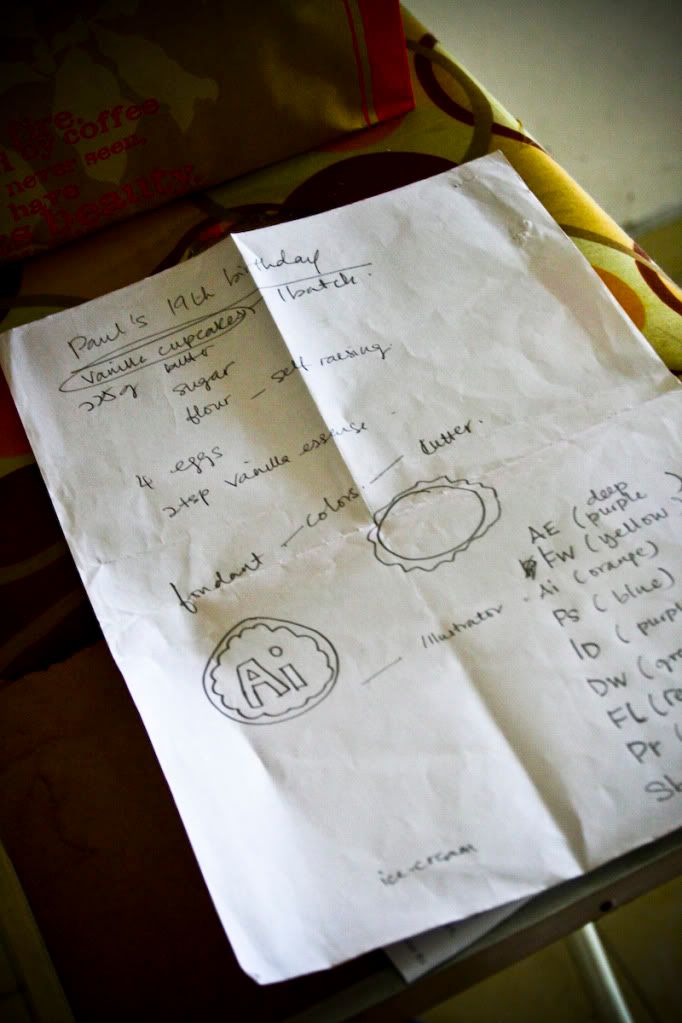 fire.
by coffee
never seen,
have
beauty.
Paul's 19th birthday
Vanilla cupcakes 1 batch.
225g butter
sugar
flour — self raising.
4 eggs
2tsp vanilla essense
fondant — colors. — cutter.
Ai — Illustrator
AE (deep purple)
FW (yellow)
Ai (orange)
Ps (blue)
ID (purp
DW (gr
FL (r
Pr (
St
ice-cream